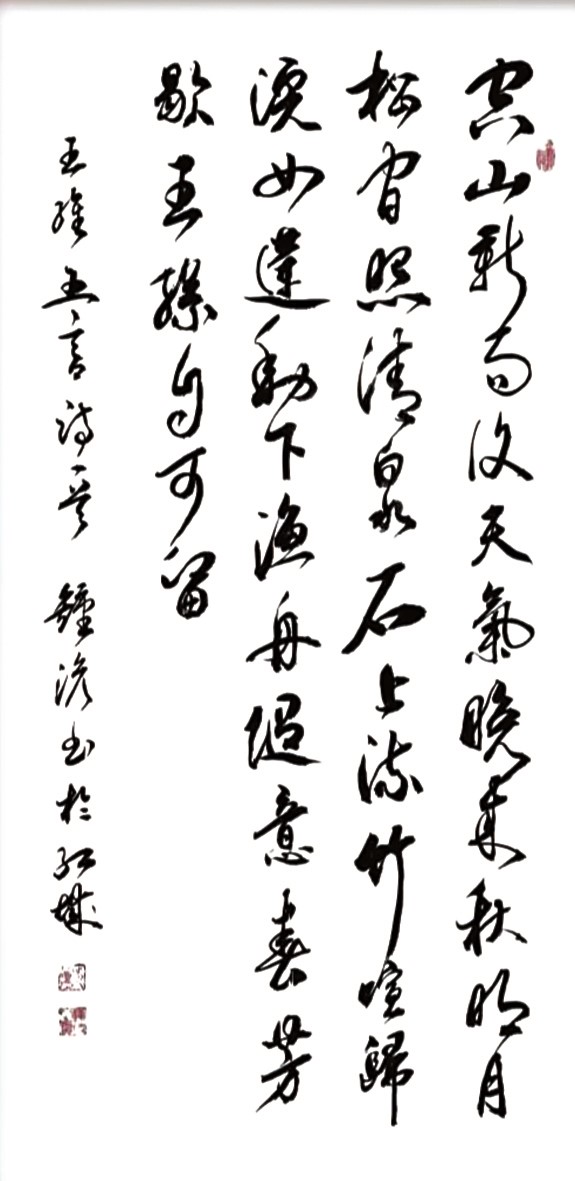 空山新雨後天氣晚來秋明月
松間照清泉石上流竹喧歸
浣女蓮動下漁舟隨意春芳
歇王孫自可留
王維五言詩一首 鍾 书於 城